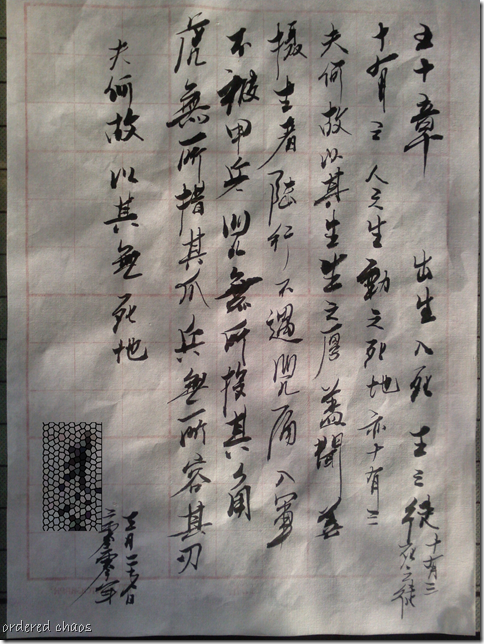 五十章 出生入死 生之徒十有三 死之徒
十有三 人之生 動之死地 亦十有三
夫何故 以其生生之厚 蓋聞善
摄生者 陸行不遇兕虎 入軍
不被甲兵 兕無所投其角
虎無所措其爪 兵無所容其刃
夫何故 以其無死地
ordered chaos